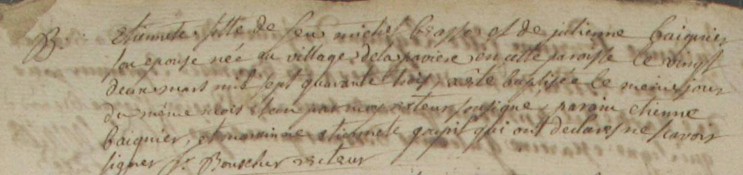 B. Etiennete fille de feu michel brasse et de julienne baignier
son epouse née au village de la riviere en cette paroisse le vingt
deux mars mil sept quarante trois, a esté baptisée le meme jour
du même mois et an par moy recteur soussigné, parain etienne
baignier, et maraine etiennete qui ont declaré ne scavoir
signer Bouscher recteur